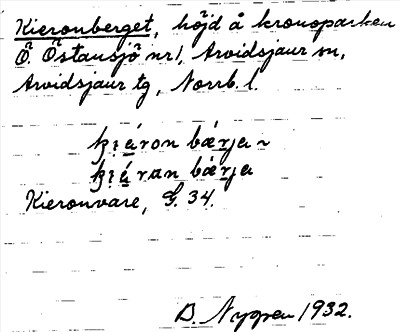 Kieronberget, höjd å kronoparken
Ö. Östansjö nr 1, Arvidsjaur sn,
Arvidsjaur tg, Norrb. l.
ķi̯áron bǽrja ~
ķi̯áran bǽrja
Kieronvare, G. 34.
B. Nygren 1932.